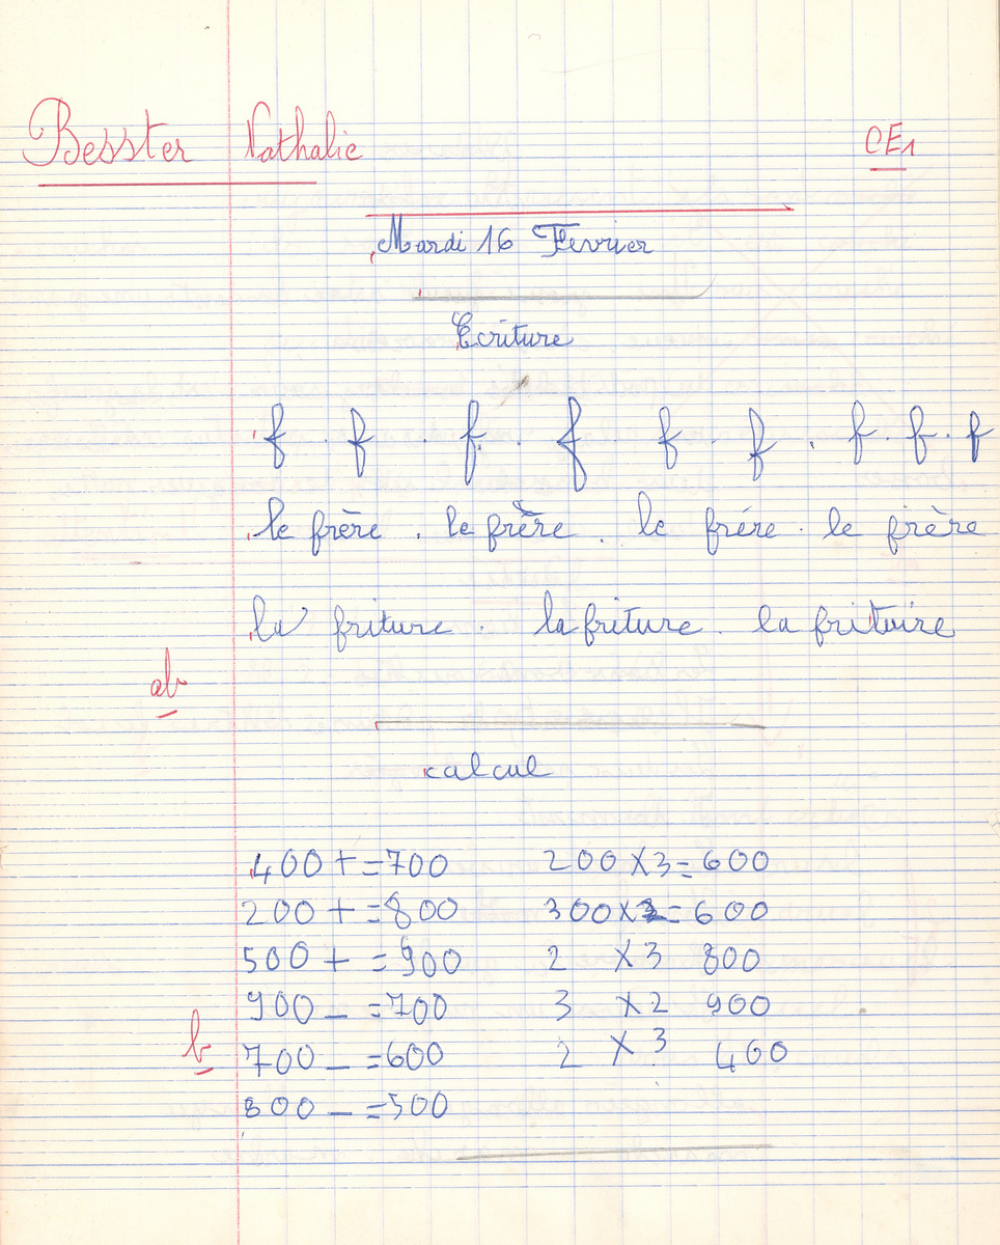 Besster Nathalie CE1
Mardi 16 Fevrier
Ecriture
f . f . f . f f . f . f . f . f
le frère . le frère . le frére . le frère
la friture . la friture . la fritoire
ab
calcul
400 + = 700 200 X 3 = 600
200 + = 800 300 X 2 = 600
500 + = 900 2 X 3 800
900 - = 700 3 X 2 900
b 700 - = 600 2 X 3 400
800 - = 500